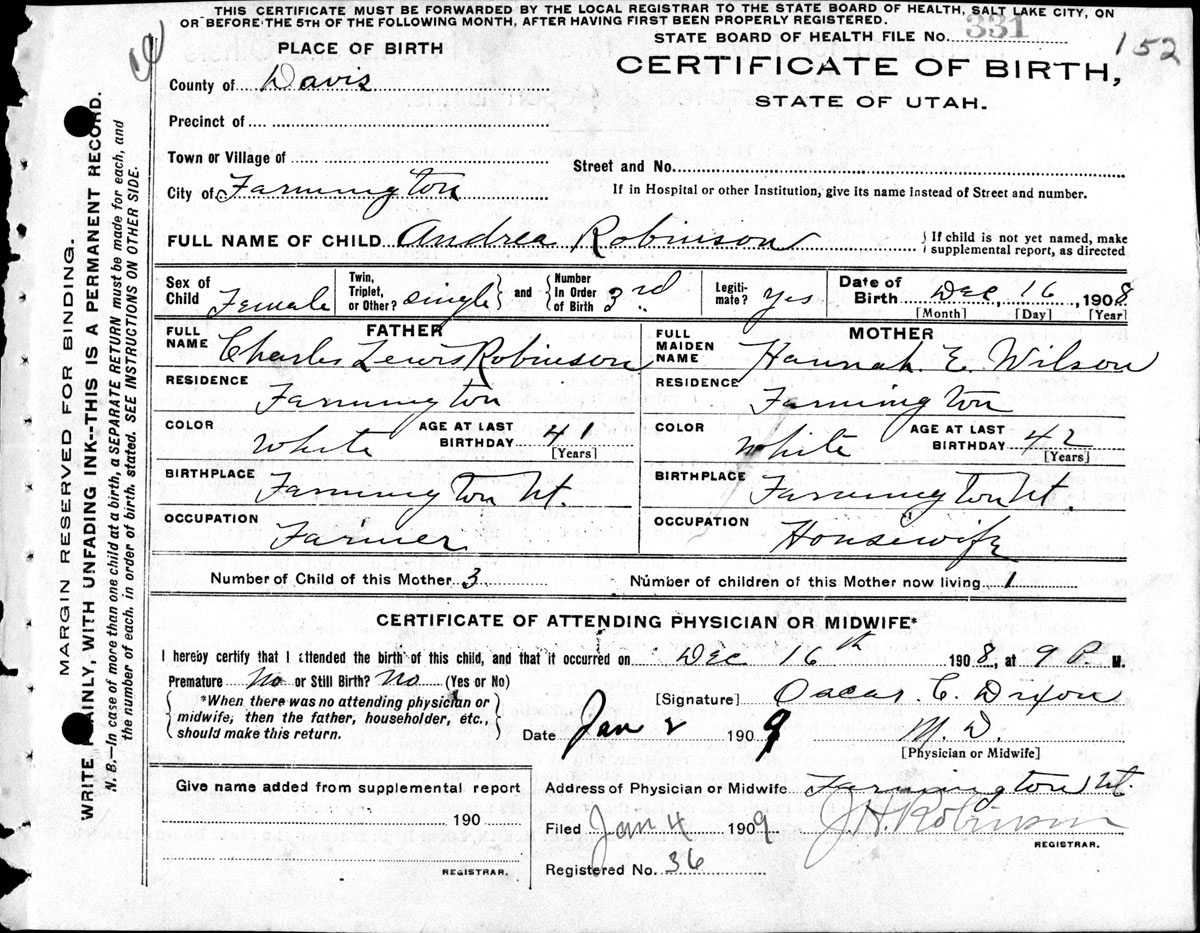 THIS CERTIFICATE MUST BE FORWARDED BY THE LOCAL REGISTRAR TO THE STATE BOARD OF HEALTH, SALT LAKE CITY, ON
OR BEFORE THE 5TH OF THE FOLLOWING MONTH, AFTER HAVING FIRST BEEN PROPERLY REGISTERED.
STATE BOARD OF HEALTH FILE No. 331
152
PLACE OF BIRTH
CERTIFICATE OF BIRTH,
STATE OF UTAH.
County of Davis
Precinct of
Town or Village of
Street and No.
City of Farmington
If in Hospital or other Institution, give its name instead of Street and number.
FULL NAME OF CHILD Andrea Robinson
{ If child is not yet named, make supplemental report, as directed
Sex of Child Female
Twin, Triplet, or Other? single } and { Number In Order of Birth 3rd
Legitimate? Yes
Date of Birth Dec, 16 1908
[Month] [Day] [Year]
FATHER
FULL NAME Charles Lewis Robinson
MOTHER
FULL MAIDEN NAME Hannah. E. Wilson
RESIDENCE Farmington
RESIDENCE Farmington
COLOR White AGE AT LAST BIRTHDAY 41 [Years]
COLOR White AGE AT LAST BIRTHDAY 42 [Years]
BIRTHPLACE Farmington Ut.
BIRTHPLACE Farmington Ut.
OCCUPATION Farmer
OCCUPATION Housewife
Number of Child of this Mother 3
Number of children of this Mother now living 1
CERTIFICATE OF ATTENDING PHYSICIAN OR MIDWIFE*
I hereby certify that I attended the birth of this child, and that it occurred on Dec 16th 1908, at 9 P. M.
Premature No or Still Birth? No (Yes or No)
{ *When there was no attending physician or midwife, then the father, householder, etc., should make this return. }
[Signature] Oscar C. Dixon
Date Jan 2 1909
M. D
[Physician or Midwife]
Give name added from supplemental report
190
REGISTRAR.
Address of Physician or Midwife Farmington Ut.
Filed Jan 4 1909 J. H. Robinson
REGISTRAR.
Registered No. 36
MARGIN RESERVED FOR BINDING.
WRITE PLAINLY, WITH UNFADING INK--THIS IS A PERMANENT RECORD.
N. B.—In case of more than one child at a birth, a SEPARATE RETURN must be made for each, and
the number of each. in order of birth. stated. SEE INSTRUCTIONS ON OTHER SIDE.